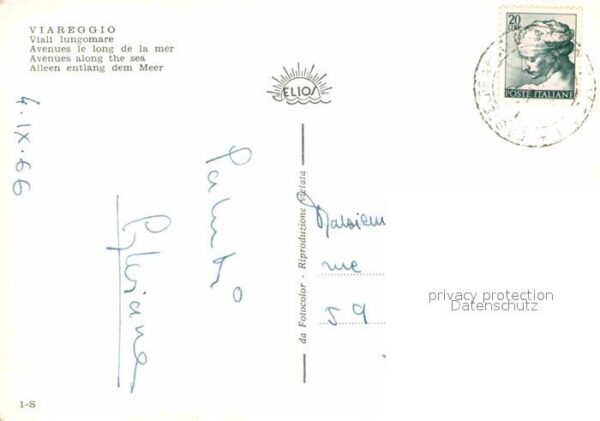 VIAREGGIO
Viali lungomare
Avenues le long de la mer
Avenues along the sea
Alleen entlang dem Meer
20
LIRE
POSTE ITALIANE
ELIOS
4·IX·66
da Fotocolor - Riproduzione vietata
me
59
privacy protection
Datenschutz
1-S